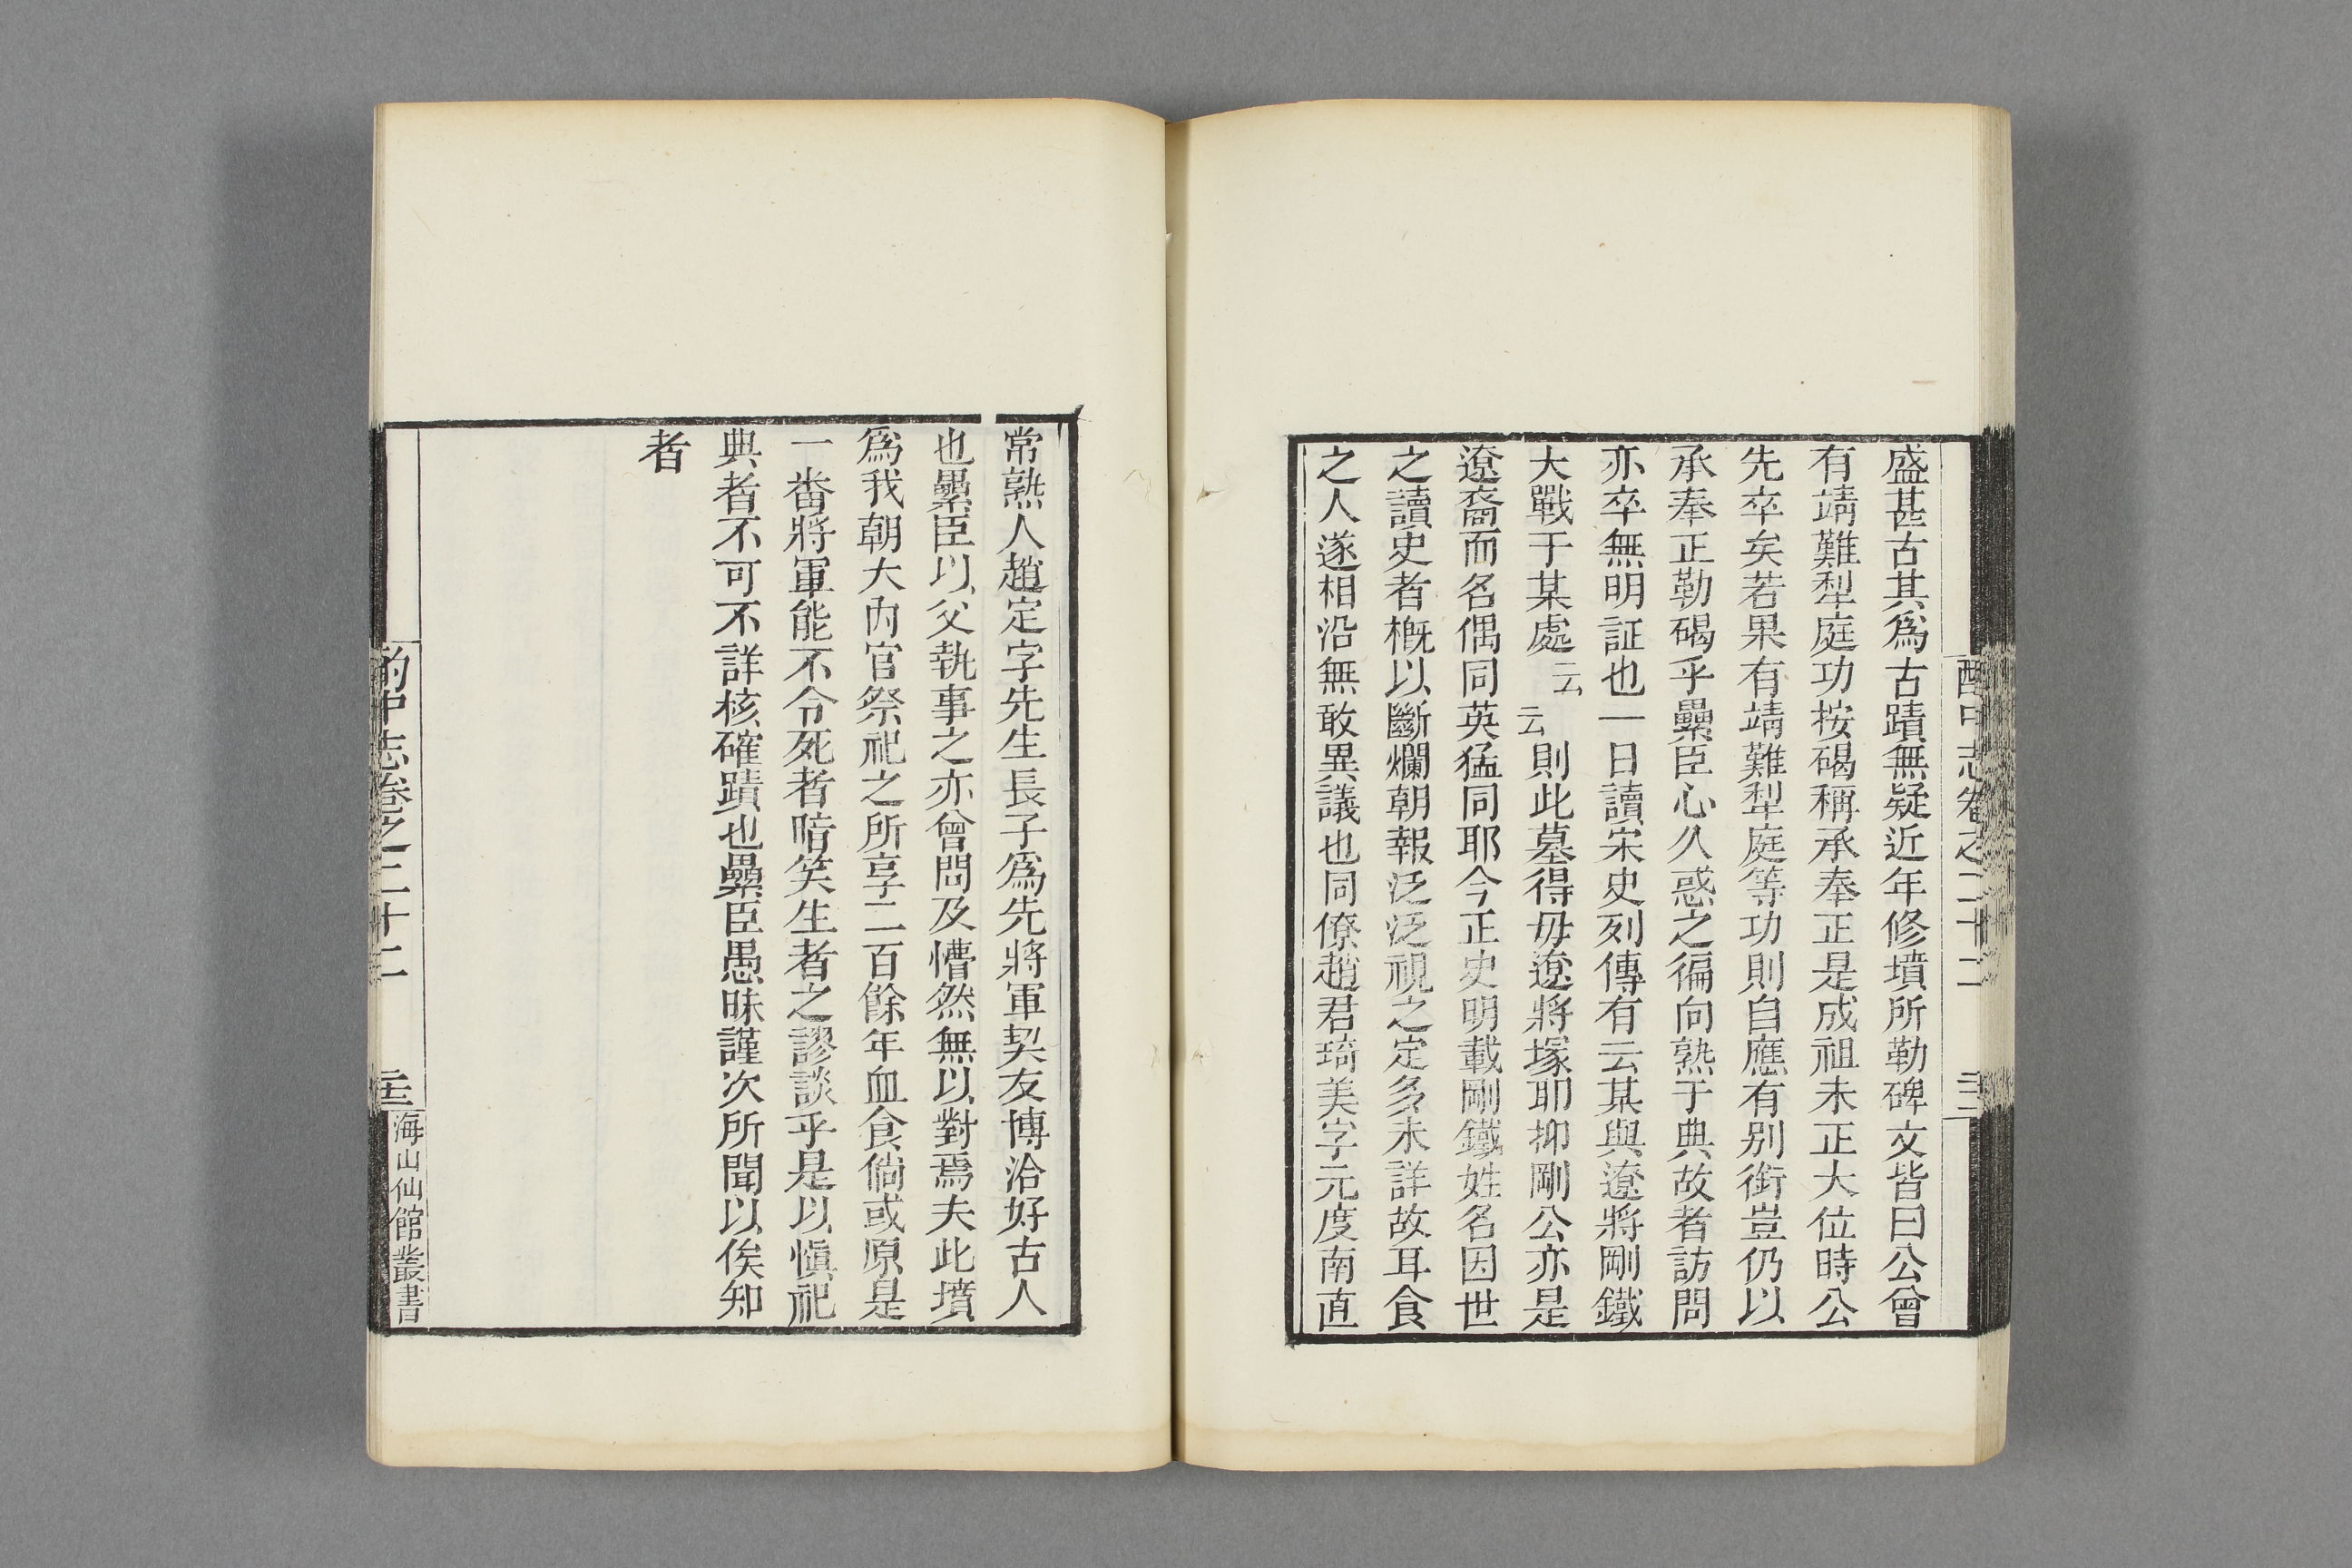 酌中志卷之二十二
盛甚古其爲古蹟無疑近年修墳所勒碑文皆曰公曾
有靖難犁庭功按碣稱承奉正是成祖未正大位時公
先卒矣若果有靖難犁庭等功則自應有别銜豈仍以
承奉正勒碣乎纍臣心久惑之徧向熟于典故者訪問
亦卒無明証也一日讀宋史列傳有云某與遼將剛鐵
大戰于某處云云則此墓得毋遼將塚耶抑剛公亦是
遼裔而名偶同英猛同耶今正史明載剛鐵姓名因世
之讀史者概以斷爛朝報泛泛視之定多未詳故耳食
之人遂相沿無敢異議也同僚趙君琦美字元度南直
常熟人趙定字先生長子爲先將軍契友博洽好古人
也纍臣以父執事之亦曾問及懵然無以對焉夫此墳
爲我朝大內官祭祀之所享二百餘年血食倘或原是
一畨將軍能不令死者暗笑生者之謬談乎是以愼祀
典者不可不詳核確蹟也纍臣愚昧謹次所聞以俟知
者
酌中志卷之二十二
三
海山仙館叢書